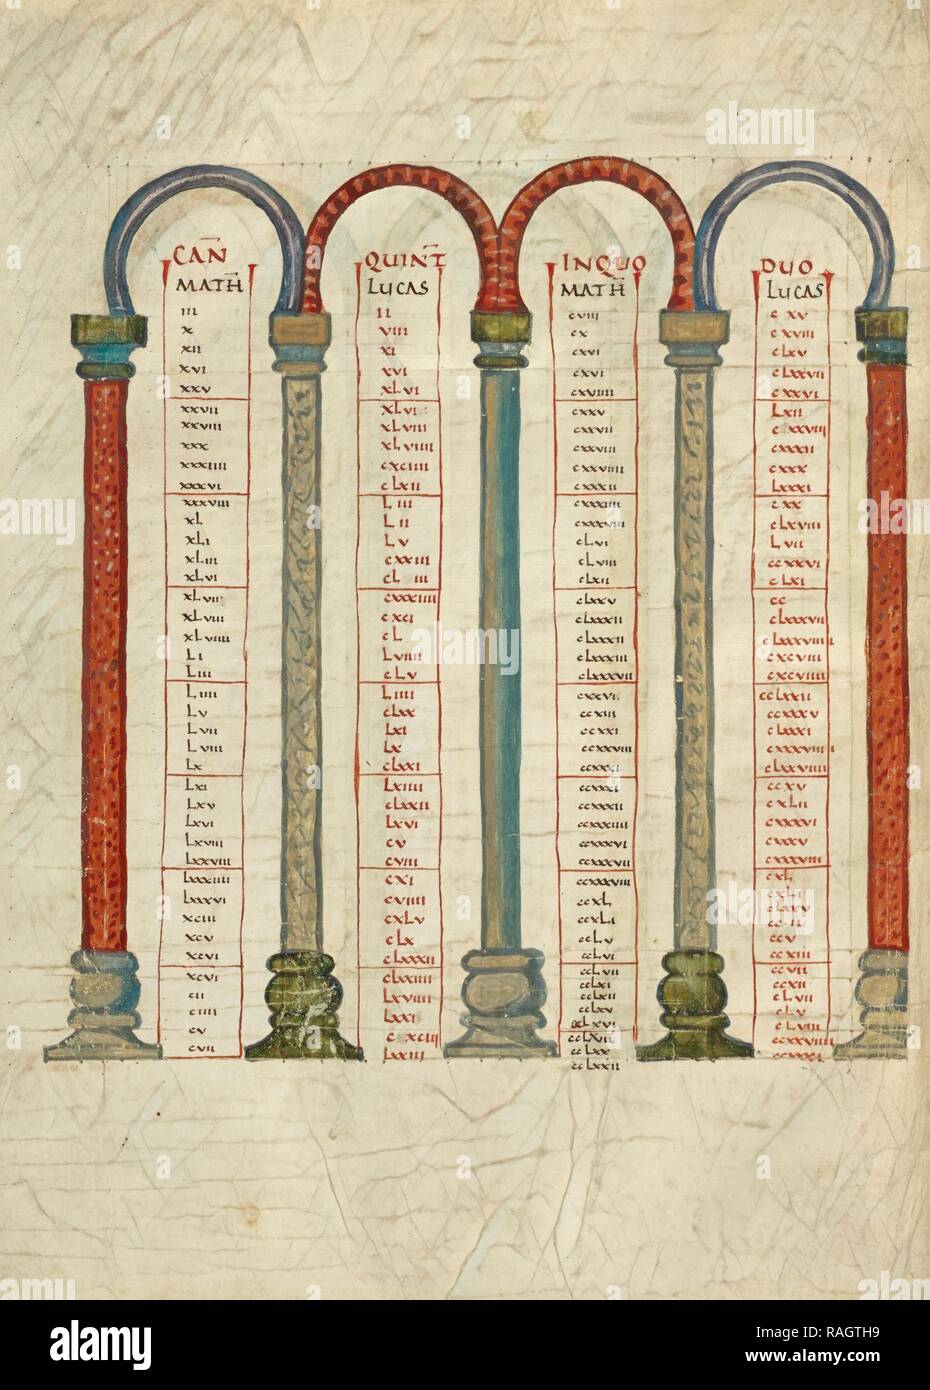 CAÑ QUINT̄ INQUO DUO
MATH̄
III
X
XII
XVI
XXV
XXVII
XXVIII
XXX
XXXIIII
XXXVI
XXXVIII
XL
XLI
XLIII
XLVI
XLVII
XLVIII
XLVIIII
LI
LIII
LIIII
LV
LVII
LVIII
LX
LXI
LXV
LXVI
LXVIII
LXXVIII
LXXXIIII
LXXXVI
XCIII
XCV
XCVI
XCVI
CII
CIIII
CV
CVII
LUCAS
II
VIII
XI
XVI
XLVI
XLVI
XLVIII
XLVIIII
CXCIIII
CLXII
LIII
LII
LV
CXXIII
CL III
CXXXIIII
CXCI
CL
LVIIII
CLV
LIIII
CLXX
LXI
LX
CLXXI
LXIIII
CLXXII
LXVI
CV
CVIII
CXI
CVIIII
CXLV
CLX
CLXXXII
CLXXIIII
LXVIIII
LXXI
CXCIII
LXXIII
MATH̄
CVIII
CX
CXVI
CXVI
CXVIIII
CXXV
CXXVII
CXXVIII
CXXVIIII
CXXXII
CXXXIIII
CXXXVIII
CLVI
CLVIII
CLXII
CLXXV
CLXXXII
CLXXXII
CLXXXIII
CLXXXVII
CXCVI
CCXIII
CCXXI
CCXXVIII
CCXXXI
CCXXXI
CCXXXII
CCXXXIIII
CCXXXVI
CCXXXVII
CCXXXVIII
CCXL
CCXLI
CCLV
CCLVI
CCLVII
CCLXI
CCLXII
CCLXV
CCLXVI
CCLXVII
CCLXX
CCLXXII
LUCAS
CXV
CXVIII
CLXV
CLXXVII
CXXVI
LXII
CXXVIII
CXXXII
CXXX
LXXXI
CXX
CLXVIII
LVII
CCXXVI
CLXI
CC
CLXXXVII
CLXXXVIIII
CXCVIII
CXCVIIII
CCLXXII
CCXXXV
CLXXXI
CXXXVIII
CLXXVIIII
CCXV
CXLII
CXXXVI
CXXXV
CXXXVIII
CXL
CXLI
CLXXV
CCII
CCV
CCXIII
CCVII
CCXII
CLVII
CLV
CLVIII
CCXXVIIII
CCXXXI
alamy
Image ID: RAGTH9
www.alamy.com